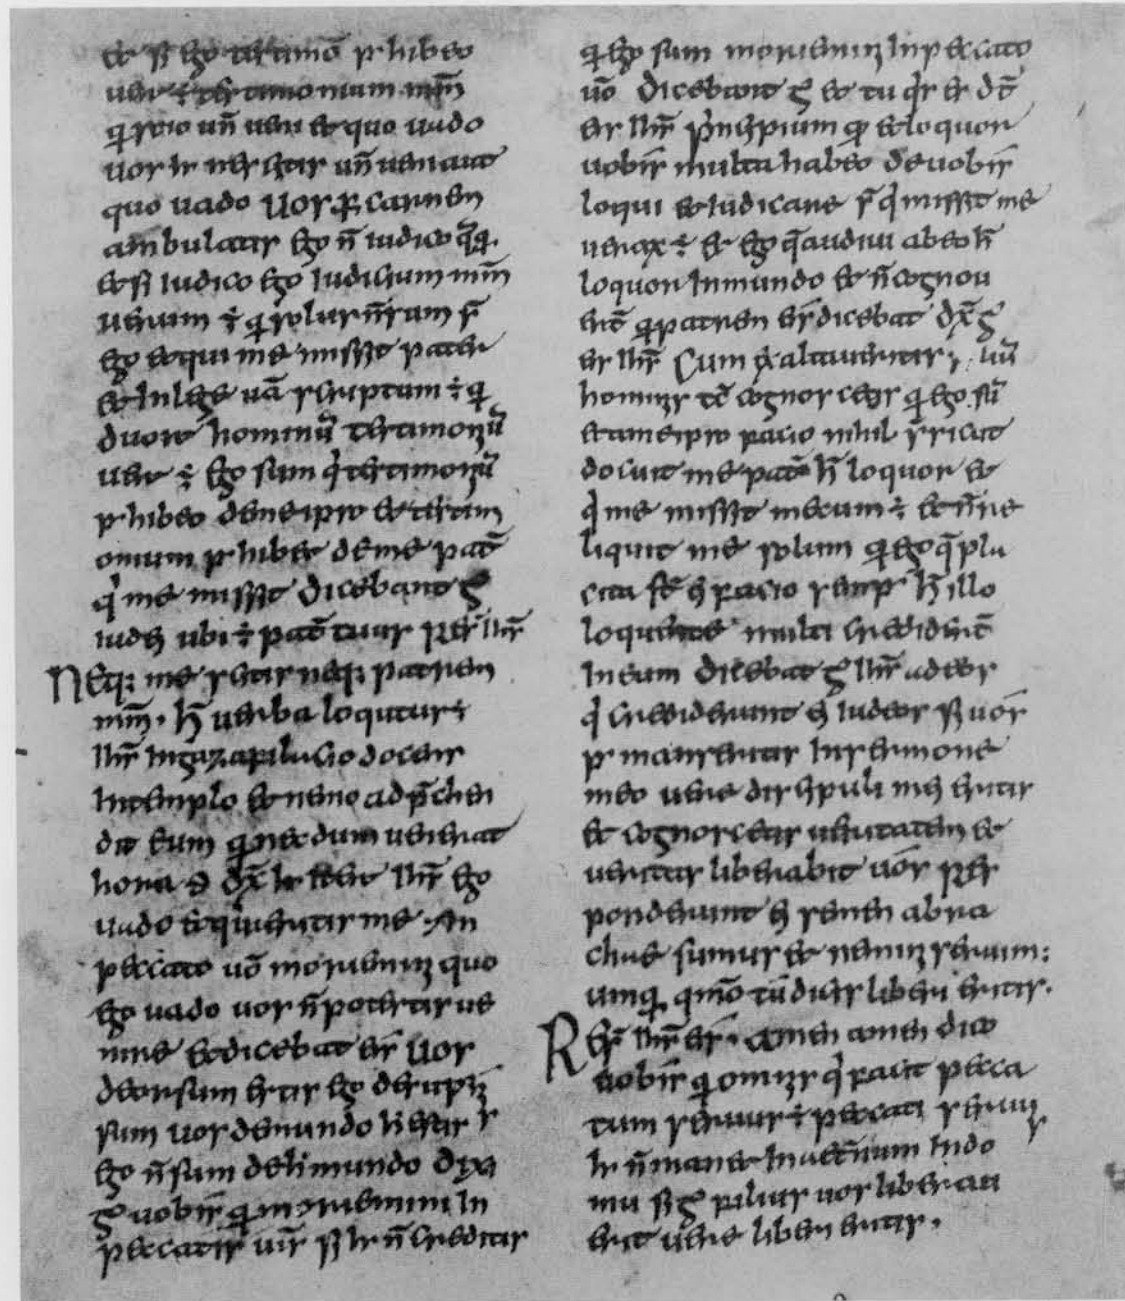 et si ego testimō phibeo
uer ÷ testimonium mm̄
q̄ scio un̄ ueni et quo uado
uos h nescitis un̄ ueni aut
quo uado Uos s̄ carnem
ambulatis ego n̄ iudico q̄q̄
et si iudico ego iudicium mm̄
uerum ÷ q̄ solus n̄ sum s̄
ego et qui me missit pater
et in lege uā scriptum ÷ q̄
duorū hominū testimoniū
uer ÷ ego sum q testimoniū
phibeo de me ipso et testim
onium phibet de me pat̄
q me missit dicebant g̅
iudei ubi ÷ pat̄ tuus res ihs̄
Neq; me scitis neq; patrem
mm̄. h̄ uerba loqutus ÷
ihs̄ in gazafilucio docens
in templo et nemo adp̄chen
dit eum q̄ necdum uenerat
hora ei dx̄ ihs̄ ego
uado et queritis me in
peccato uō moriemini quo
ego uado uos n̄ potestis ue
nire et dicebat eis̄ Uos
deorsum estis ego desuper
sum uos de mundo h̄ estis
ego n̄ sum de h̄ mundo dixi
g̅ uobis̄ q̄ moriemini in
peccatis uis̄ si h n̄ creditis
q̄ ego sum moriemini in peccato
uō dicebant g̅ et tu q̄s es dt̄
eis ihs̄ principium q̄ et loquor
uobis̄ multa habeo de uobis̄
loqui et iudicare s̄ q missit me
uerax ÷ et ego q̄ audiui ab eo h̄
loquor in mundo et n̄ cognou
ert̄ q̄ patrem eis̄ dicebat dx̄ g̅
eis ihs̄ Cum exaltaueritis
hominis tc̄ cognoscetis q̄ ego sū
et a me ipso facio nihil s̄ sicut
docuit me pat̄ h̄ loquor et
q me missit mecum ÷ et n̄ re
liquit me solum q̄ ego q̄ pla
cita st̄ ei facio semp h̄ illo
loquente multi credidert̄
in eum dicebat g̅ ihs̄ ad eos
q crediderunt ei iudeos si uos̄
p manseritis in sermone
meo uere discipuli mei eritis
et cognoscetis ueritatem et
ueritas liberabit uos̄ res
ponderunt ei semen abra
chae sumus et nemini seruiui;
umq̄ qmō tū dicis liberi eritis.
Res̄ ihs̄ eis̄. amen amen dico
uobis̄ q̄ omnis q facit pecca
tum seruus ÷ peccati seruus
h n̄ manet in aet̄num in do
mu si g̅ filius uos liberau
erit uere liberi eritis.